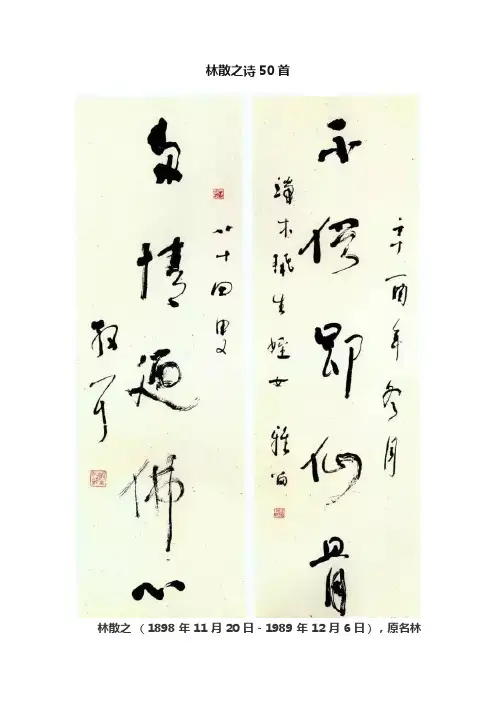 林散之诗50首
辛酉年冬月
不俗即仙骨
端木 生姪女 雅
多情迺佛心
八十四叟
散耳
林散之 （1898 年 11 月 20 日－1989 年 12 月 6 日），原名林